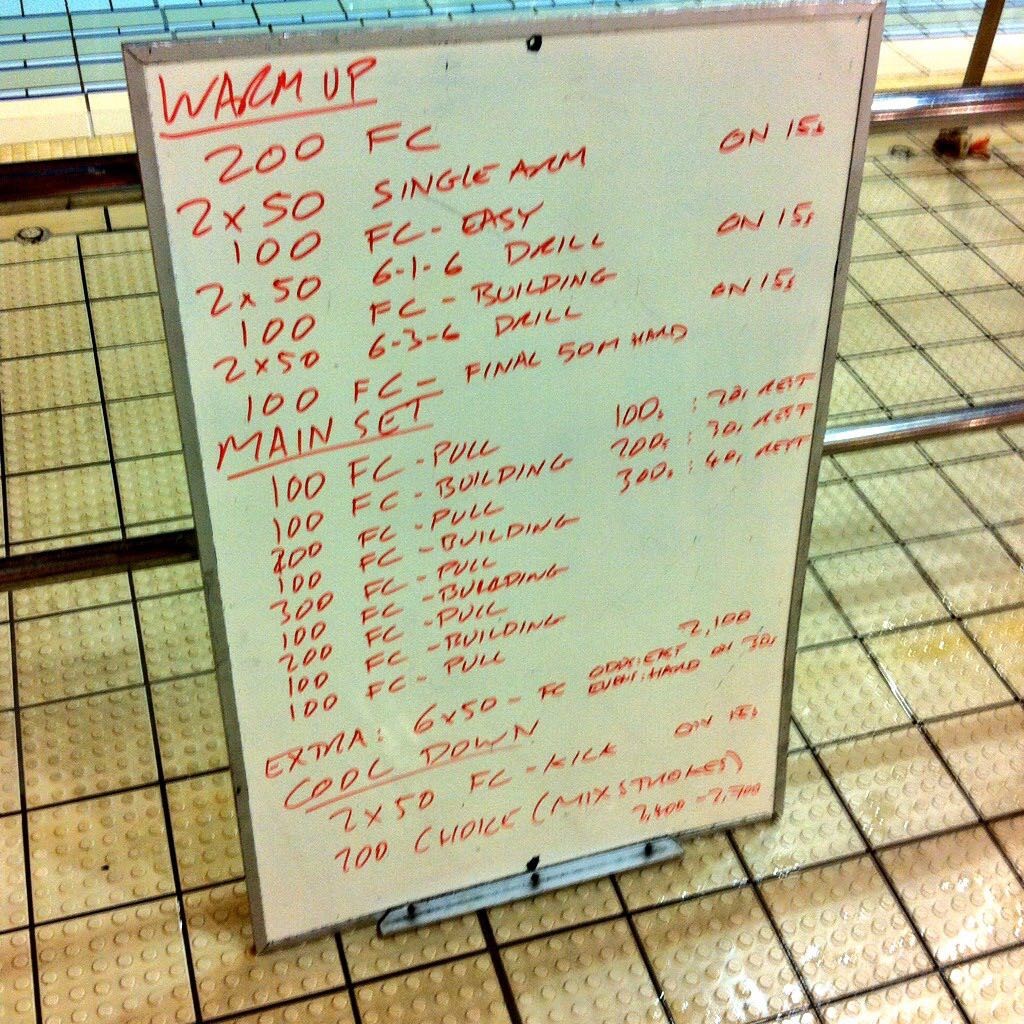 WARM UP
200 FC
2 x 50 SINGLE ARM ON 15s
100 FC - EASY
2 x 50 6-1-6 DRILL ON 15s
100 FC - BUILDING
2 x 50 6-3-6 DRILL ON 15s
100 FC - FINAL 50M HARD
MAIN SET
100 FC - PULL 100s : 20s REST
100 FC - BUILDING 200s : 30s REST
200 FC - PULL 300s : 40s REST
100 FC - BUILDING
300 FC - PULL
100 FC - BUILDING
200 FC - PULL
100 FC - BUILDING
100 FC - PULL
2,100
EXTRA: 6 x 50 - FC ODDS: EASY
EVEN: HARD ON 30s
COOL DOWN
2 x 50 FC - KICK ON 15s
200 CHOICE (MIX STROKES)
2,400 - 2,700